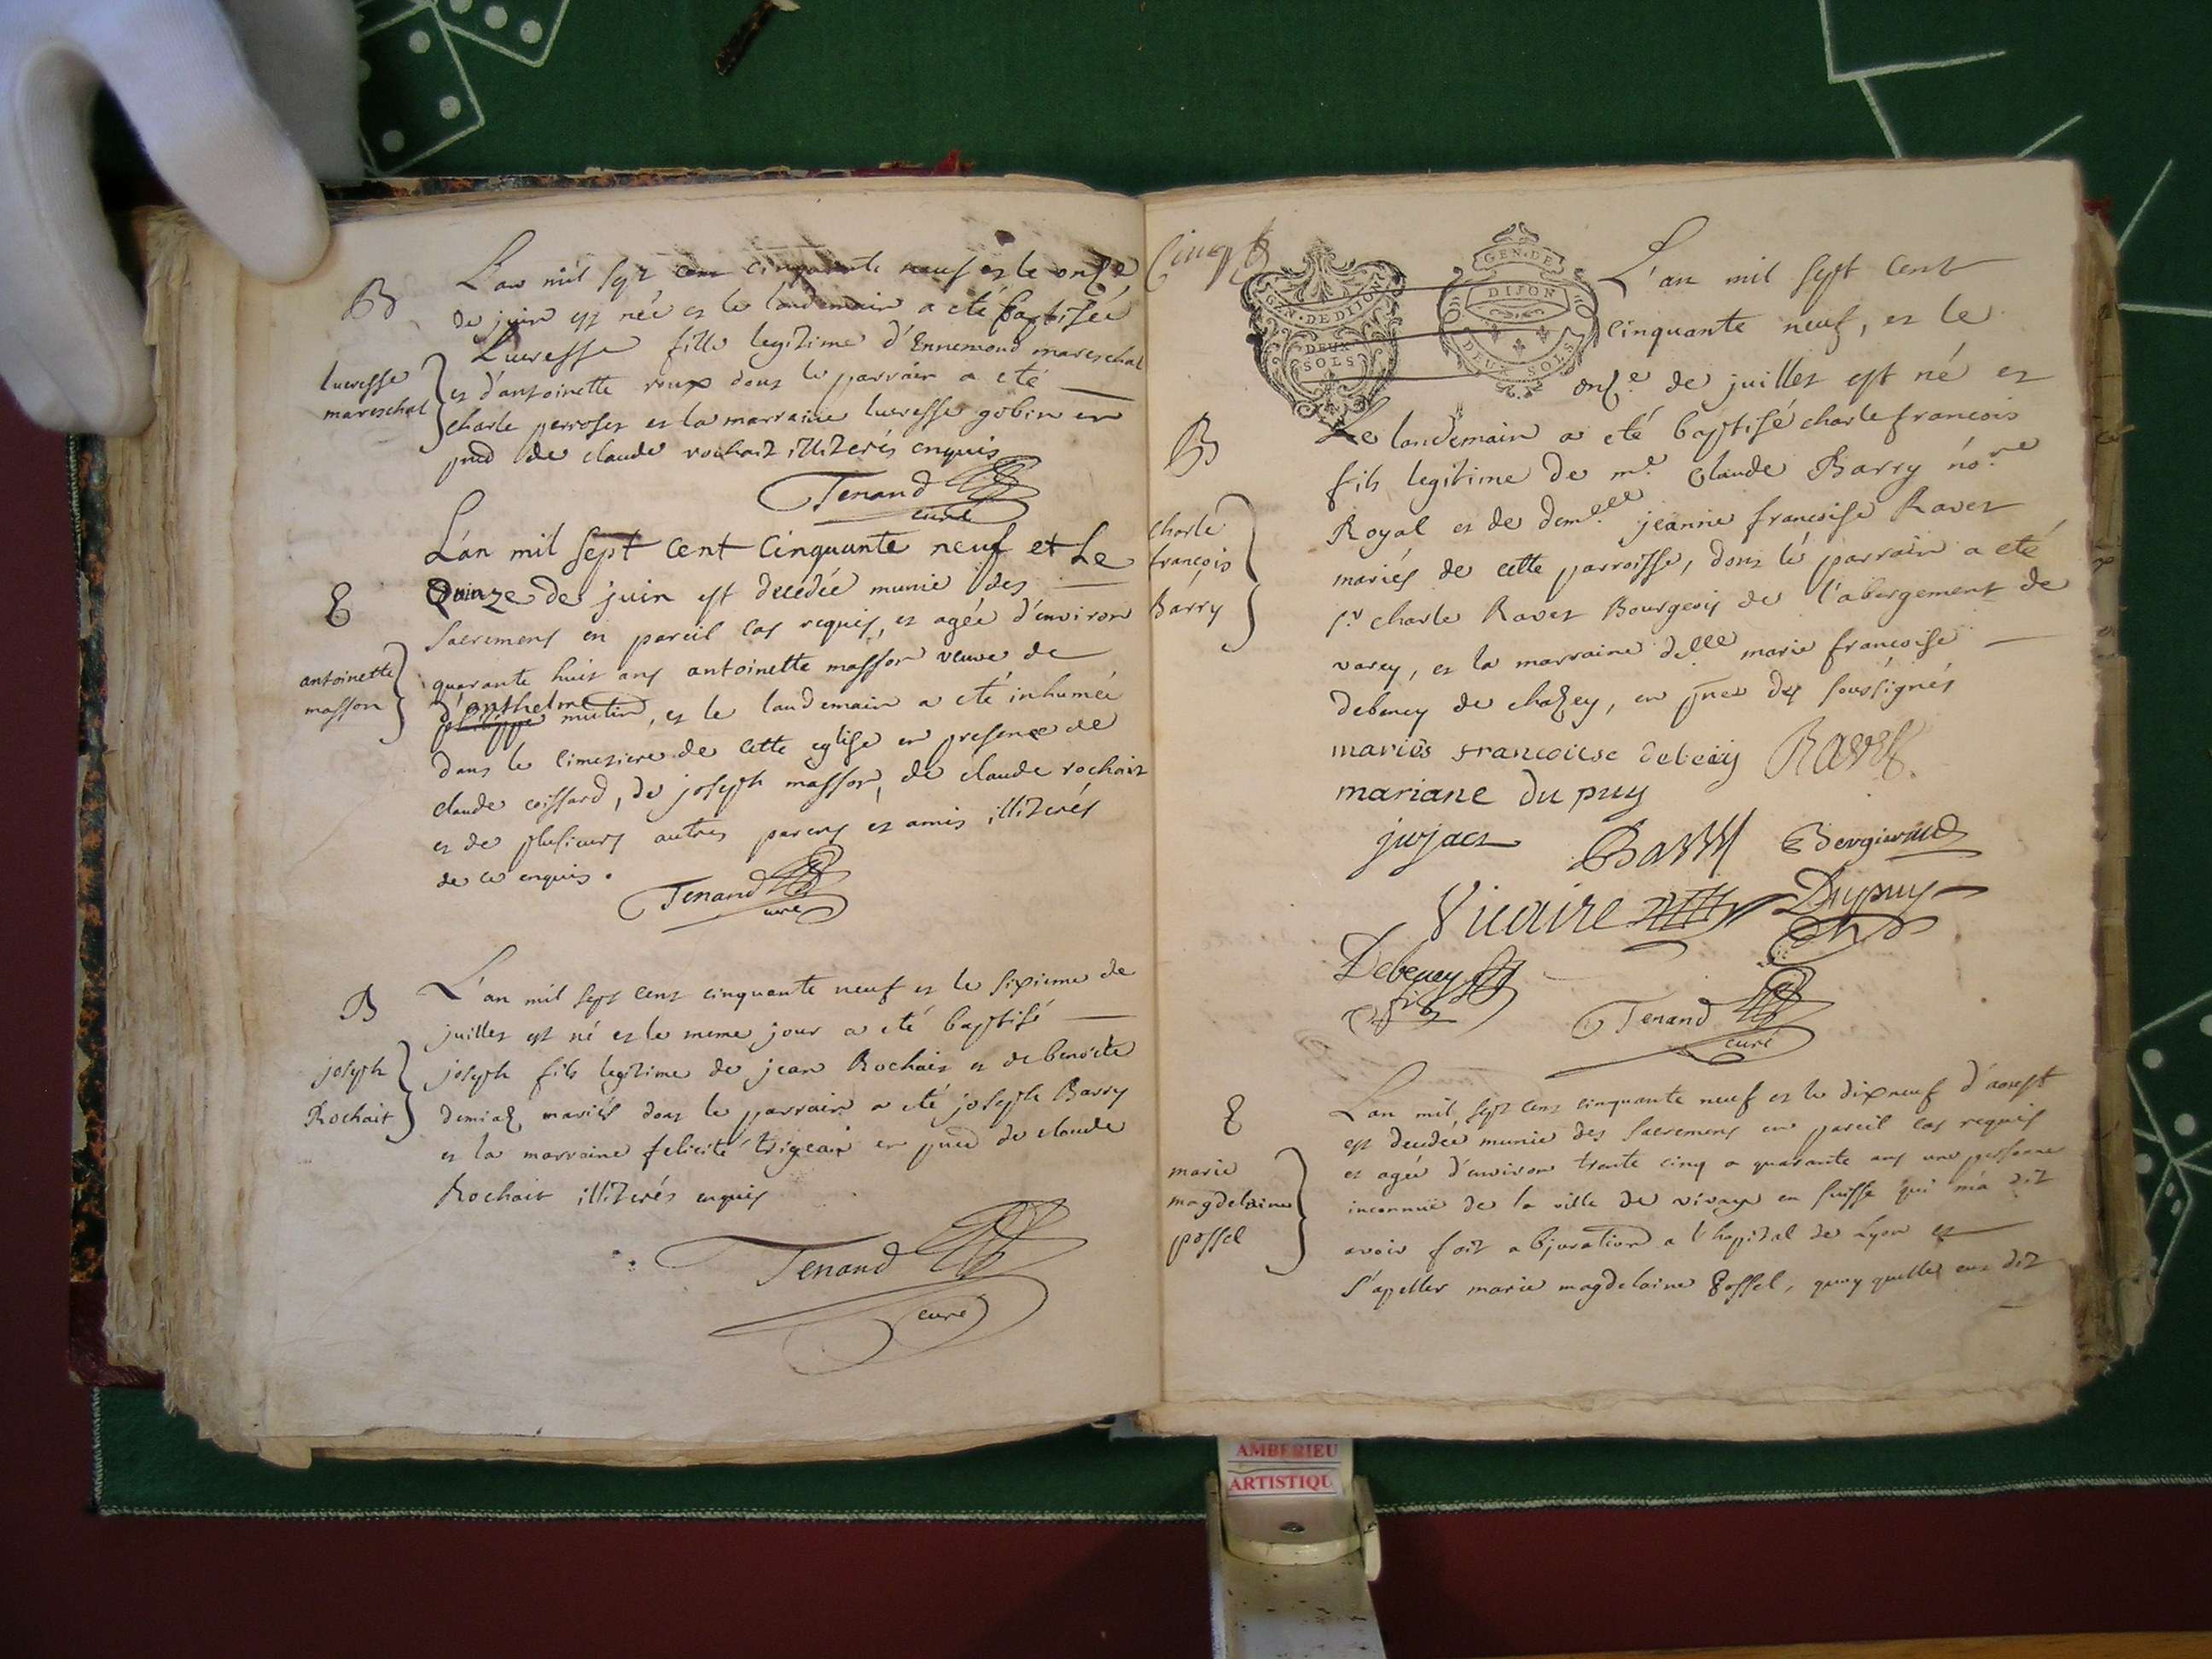 B
L'an mil sept cent cinquante neuf et le onze
de juin est née et le landemain a eté baptisée
Lucresse fille legitime d'Ennemond mareschal
lucresse
mareschal
et d'antoinette roux dont le parrain a eté
charle perroset et la marraine lucresse gobin en
pnce de claude rochait illiterés enquis
Tenand
curé
L'an mil sept cent cinquante neuf et Le
E
Quinze de juin est decedée munie des
sacremens en pareil cas requis, et agée d'environ
antoinette
masson
quarante huit ans antoinette masson veuve de
d'anthelme
mutin, et le landemain a eté inhumée
dans le cimetiere de cette eglise en presence de
claude coissard, de joseph masson, de claude rochait
et de plusieurs autres parens et amis illiterés
de ce enquis.
Tenand
curé
B
L'an mil sept cent cinquante neuf et le sixieme de
juillet est né et le meme jour a eté baptisé
joseph
Rochait
joseph fils legitime de jean Rochait et de benoite
demiaz mariés dont le parrain a eté joseph Barry
et la marraine felicité trigean en pnce de claude
Rochait illiterés enquis
Tenand
curé
GEN. DE DIJON
DEUX
SOLS
GEN. DE
DIJON
DEUX SOLS
L'an mil sept cent
cinquante neuf, et le
onze. de juillet est né et
B
Le landemain a eté baptisé charle francois
fils legitime de me. Claude Barry nore
charle
françois
Barry
Royal et de demlle jeanne francoise Ravet
mariés de cette parroisse, dont le parrain a eté
sr charle Ravet Bourgeois de l'abergement de
varey, et la marraine dlle marie francoise
debeney de chazey, en pnce des soussignés
mariés francoise debeney Ravet
mariane du puy
jujact Barry
Vicaire Dupuy
Debeney
fils
Tenand
curé
E
L'an mil sept cent cinquante neuf et le dixneuf d'aoust
est decedée munie des sacremens en pareil cas requis
marie
magdelaine
possel
et agée d'environ trente cinq a quarante ans une personne
inconnue de la ville de vivaye en suisse qui m'a dit
avoir fait abjuration a l'hopital de Lyon et
s'apeller marie magdelaine possel, quoy quelle eut dit
AMBERIEU
ARTISTIQU